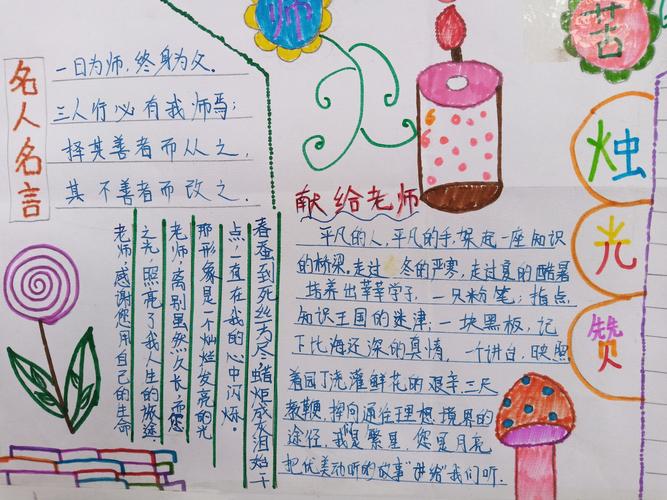 师
苦
名人名言
一日为师,终身为父.
三人行必有我师焉;
择其善者而从之,
其不善者而改之.
老师,感谢您用自己的生命
之光,照亮了我人生的旅途
老师离别虽然久长,而您
那形象是一个灿烂发亮的光
点一直在我的心中闪烁。
春蚕到死丝方尽蜡炬成灰泪始干
献给老师
平凡的人,平凡的手,架起一座知识
的桥梁.走过冬的严寒,走过夏的酷暑
培养出莘莘学子,一只粉笔,指点
知识王国的迷津;一块黑板,记
下比海还深的真情,一个讲台,映照
着园丁浇灌鲜花的艰辛.三尺
教鞭,指向通往理想境界的
途径,我是繁星,您是月亮
把优美动听的故事"讲给"我们听.
烛
光
赞